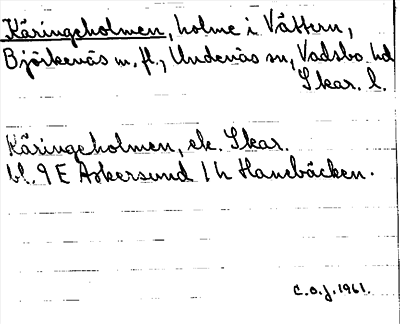 Käringeholmen, holme i Vättern,
Björkenäs m. fl., Undenäs sn, Vadsbo hd
Skar. l.
Käringeholmen, ek. Skar.
bl. 9 E Askersund 1 h Hanebäcken.
C.O.J. 1961.